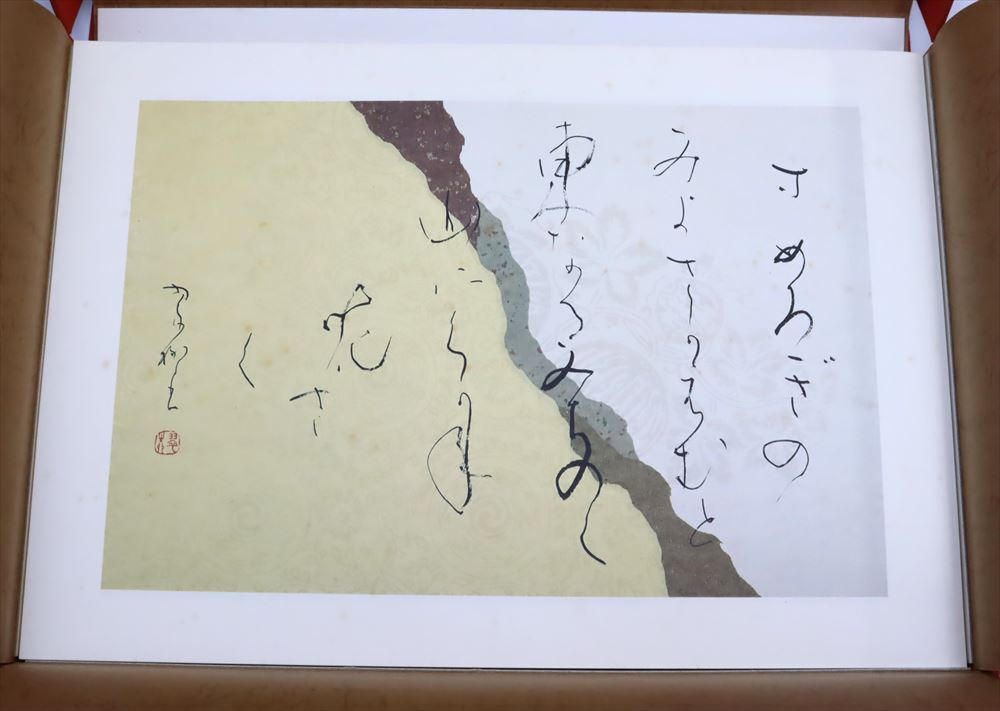 すめろぎの
みよさかえむと
東なるみちのく
山にくか年
花さ
く